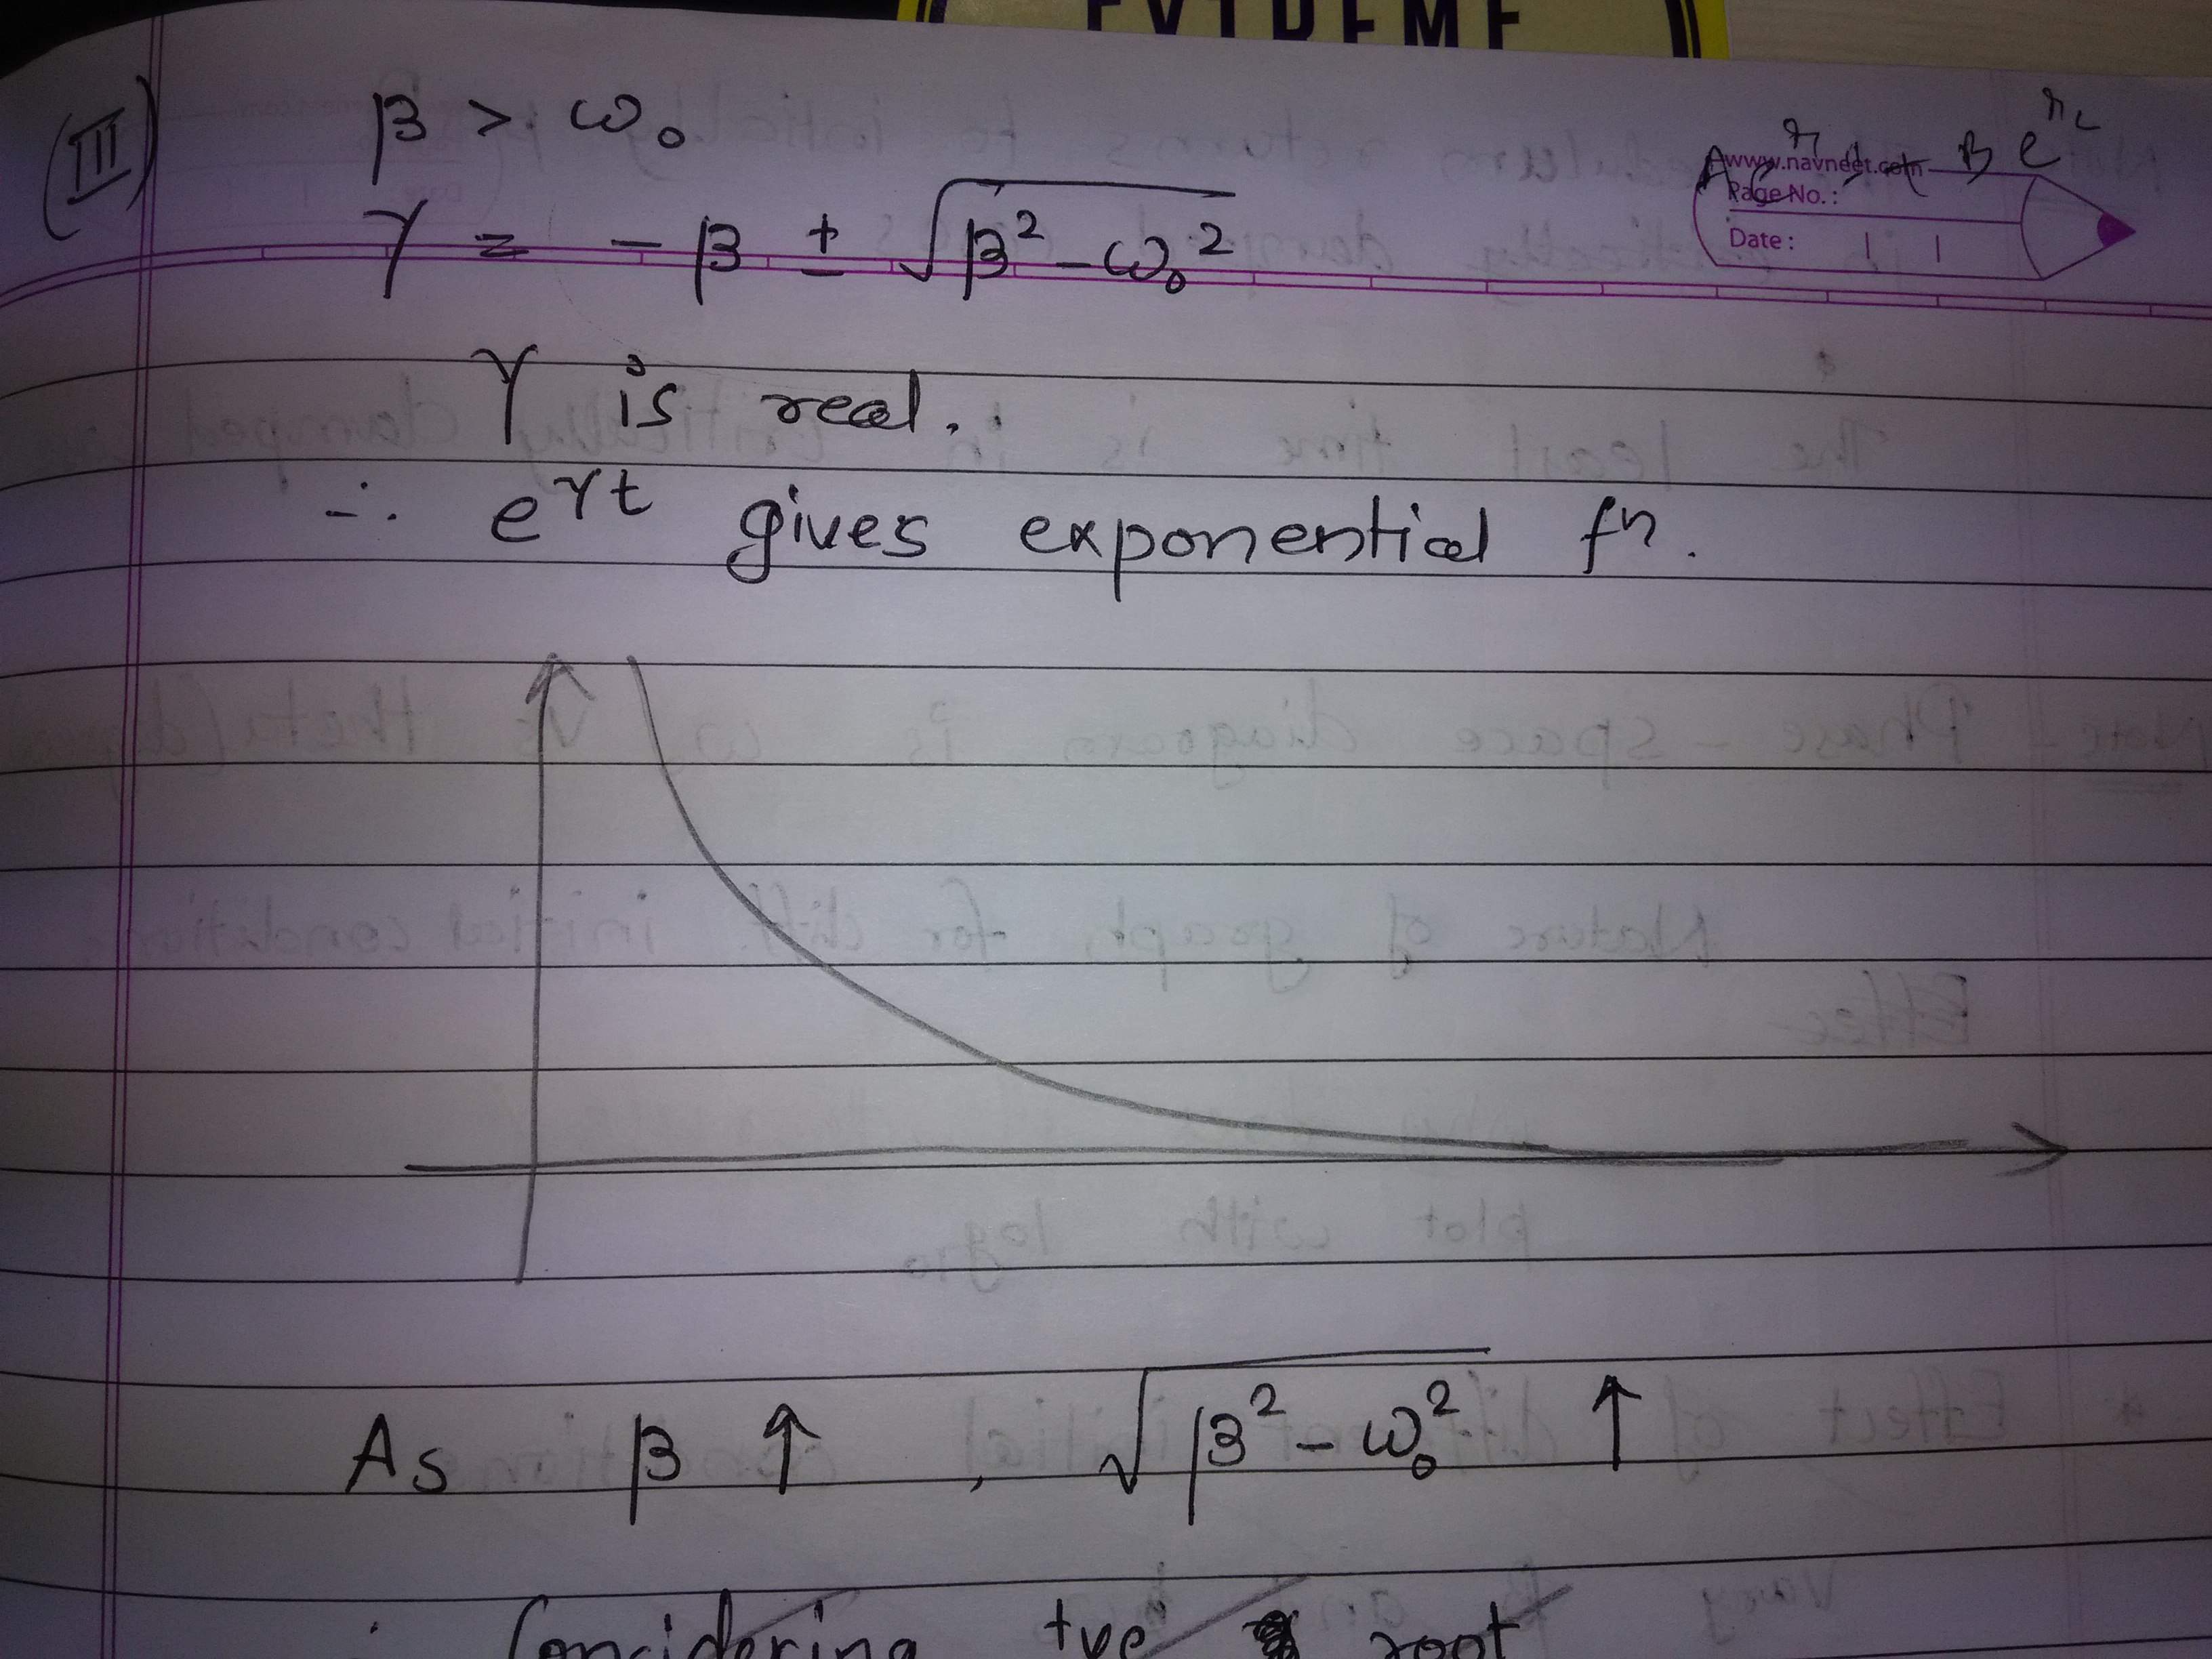 EXTREME
(III) β > ω₀
www.navneet.com
Page No.:
Date:
γ = - β ± √(β² - ω₀²)
γ is real.
∴ e^γt gives exponential fⁿ.
As β ↑ , √(β² - ω₀²) ↑
∴ Considering +ve root